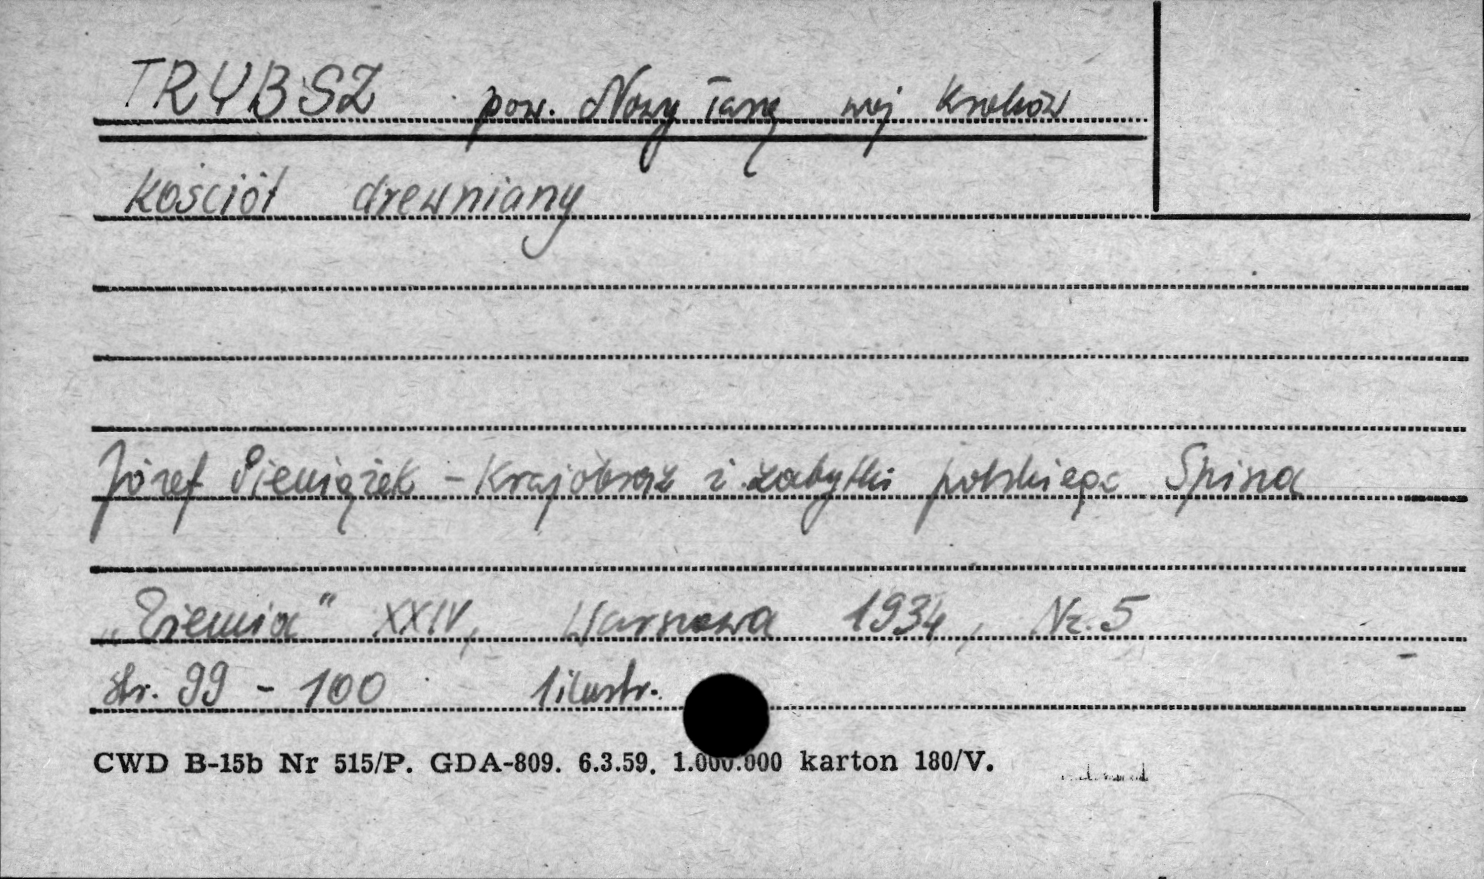 TRYBSZ pow. Nowy Targ woj Kraków
Kościół drewniany
Józef Pieniążek - Krajobraz i zabytki polskiego Spisza
„Ziemia" XXIV, Warszawa 1934, Nr. 5
str. 99 - 100 1 ilustr.
CWD B-15b Nr 515/P. GDA-809. 6.3.59. 1.000.000 karton 180/V.